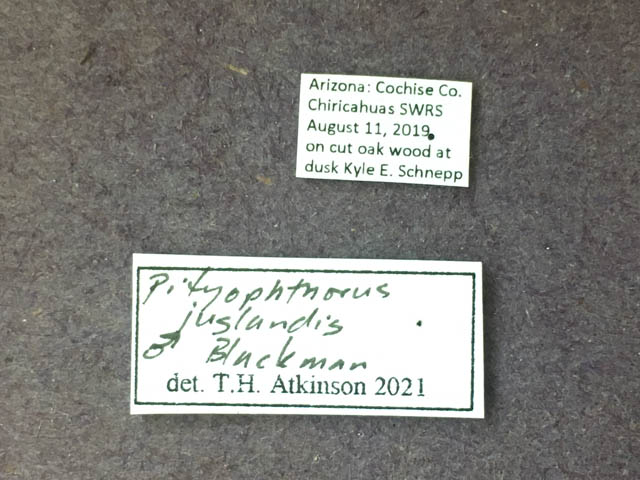 Arizona: Cochise Co.
Chiricahuas SWRS
August 11, 2019
on cut oak wood at
dusk Kyle E. Schnepp
Pityophthorus
juglandis
♂ Blackman
det. T.H. Atkinson 2021